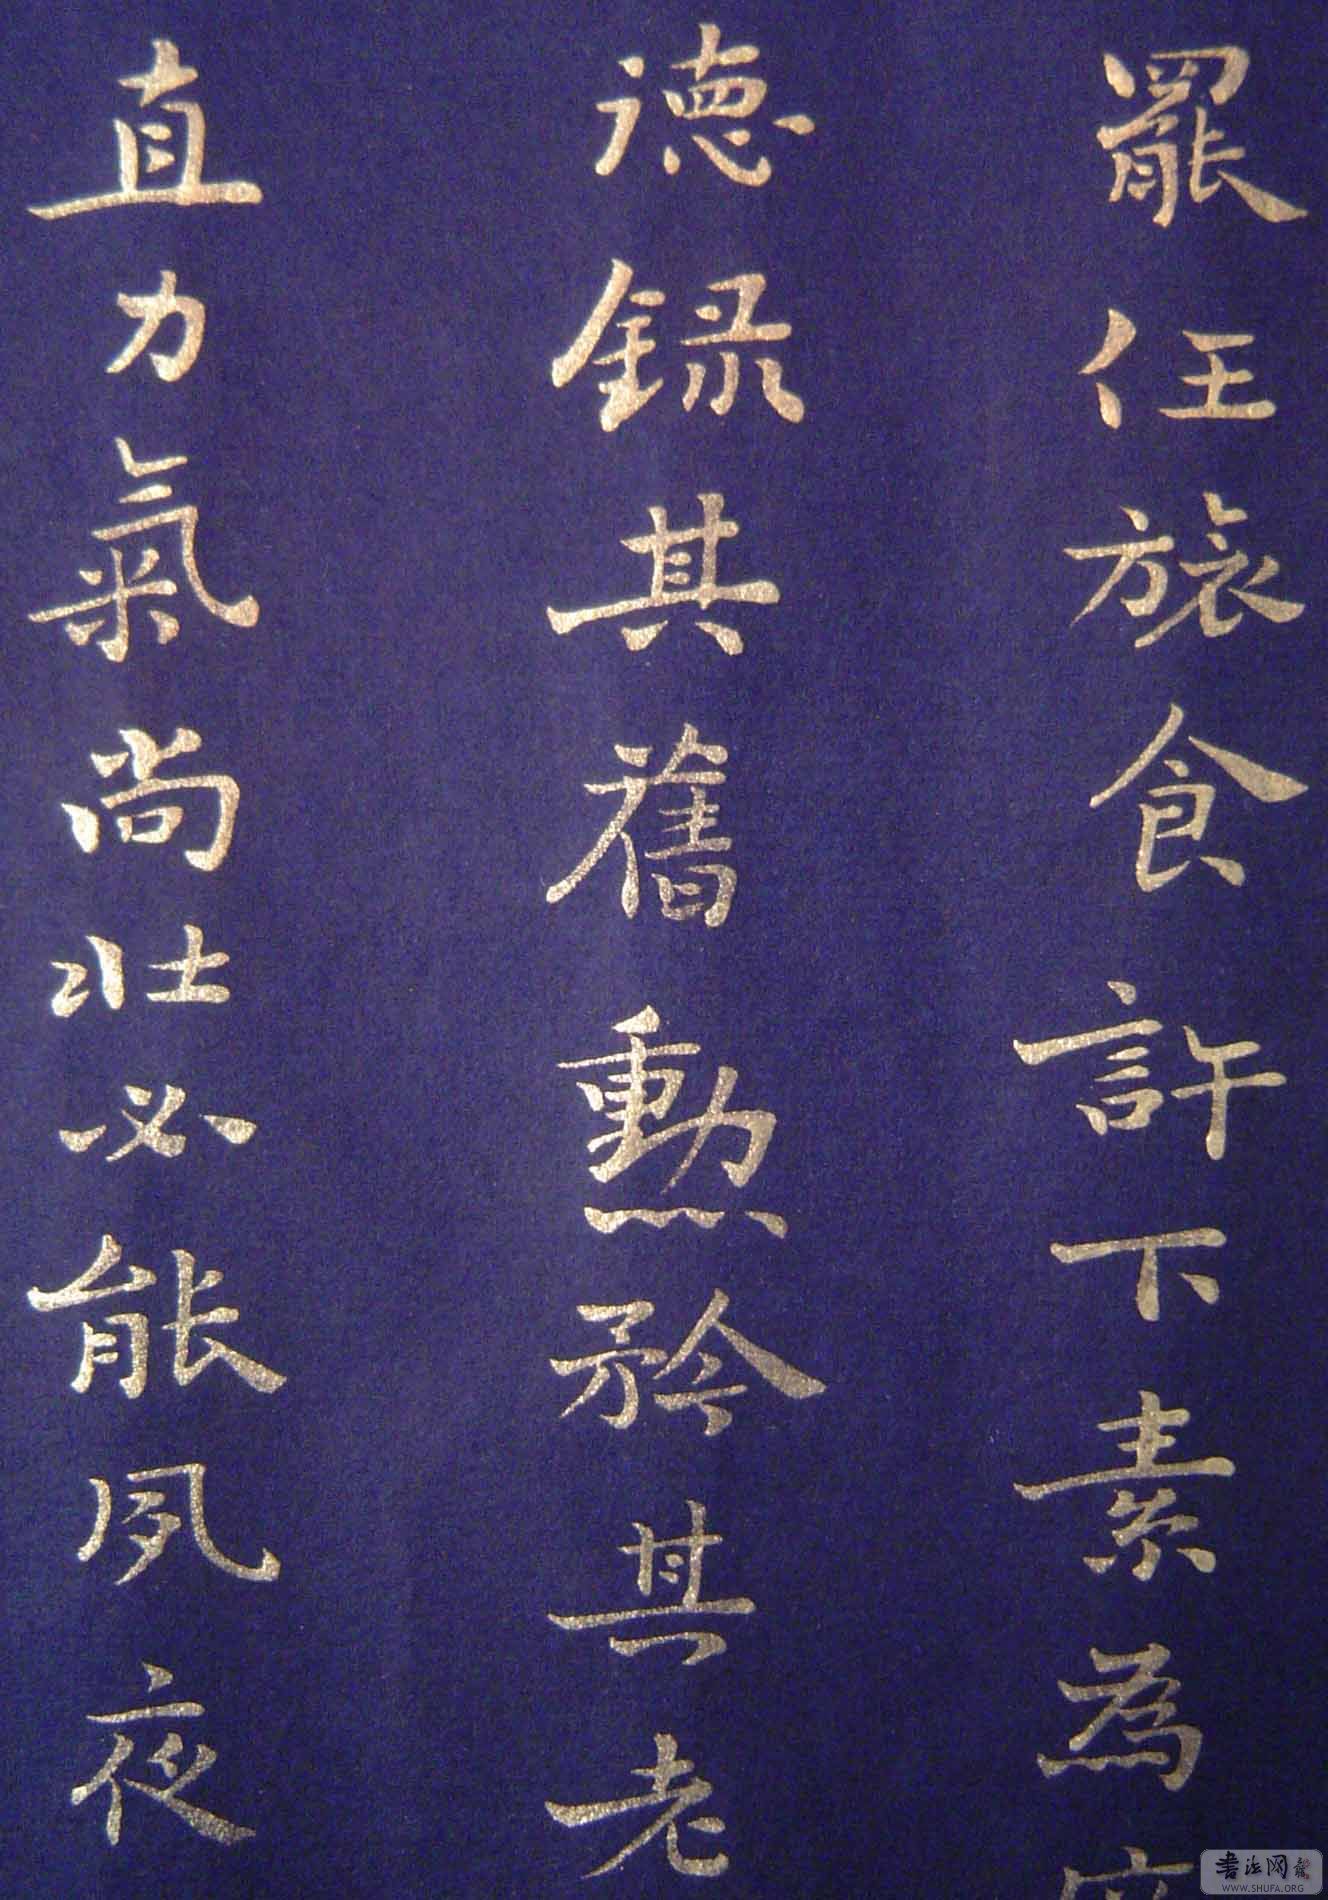 罷任旅食許下素為
德録其舊勳矜其老
直力氣尚壯必能夙夜
書法网
WWW.SHUFA.ORG